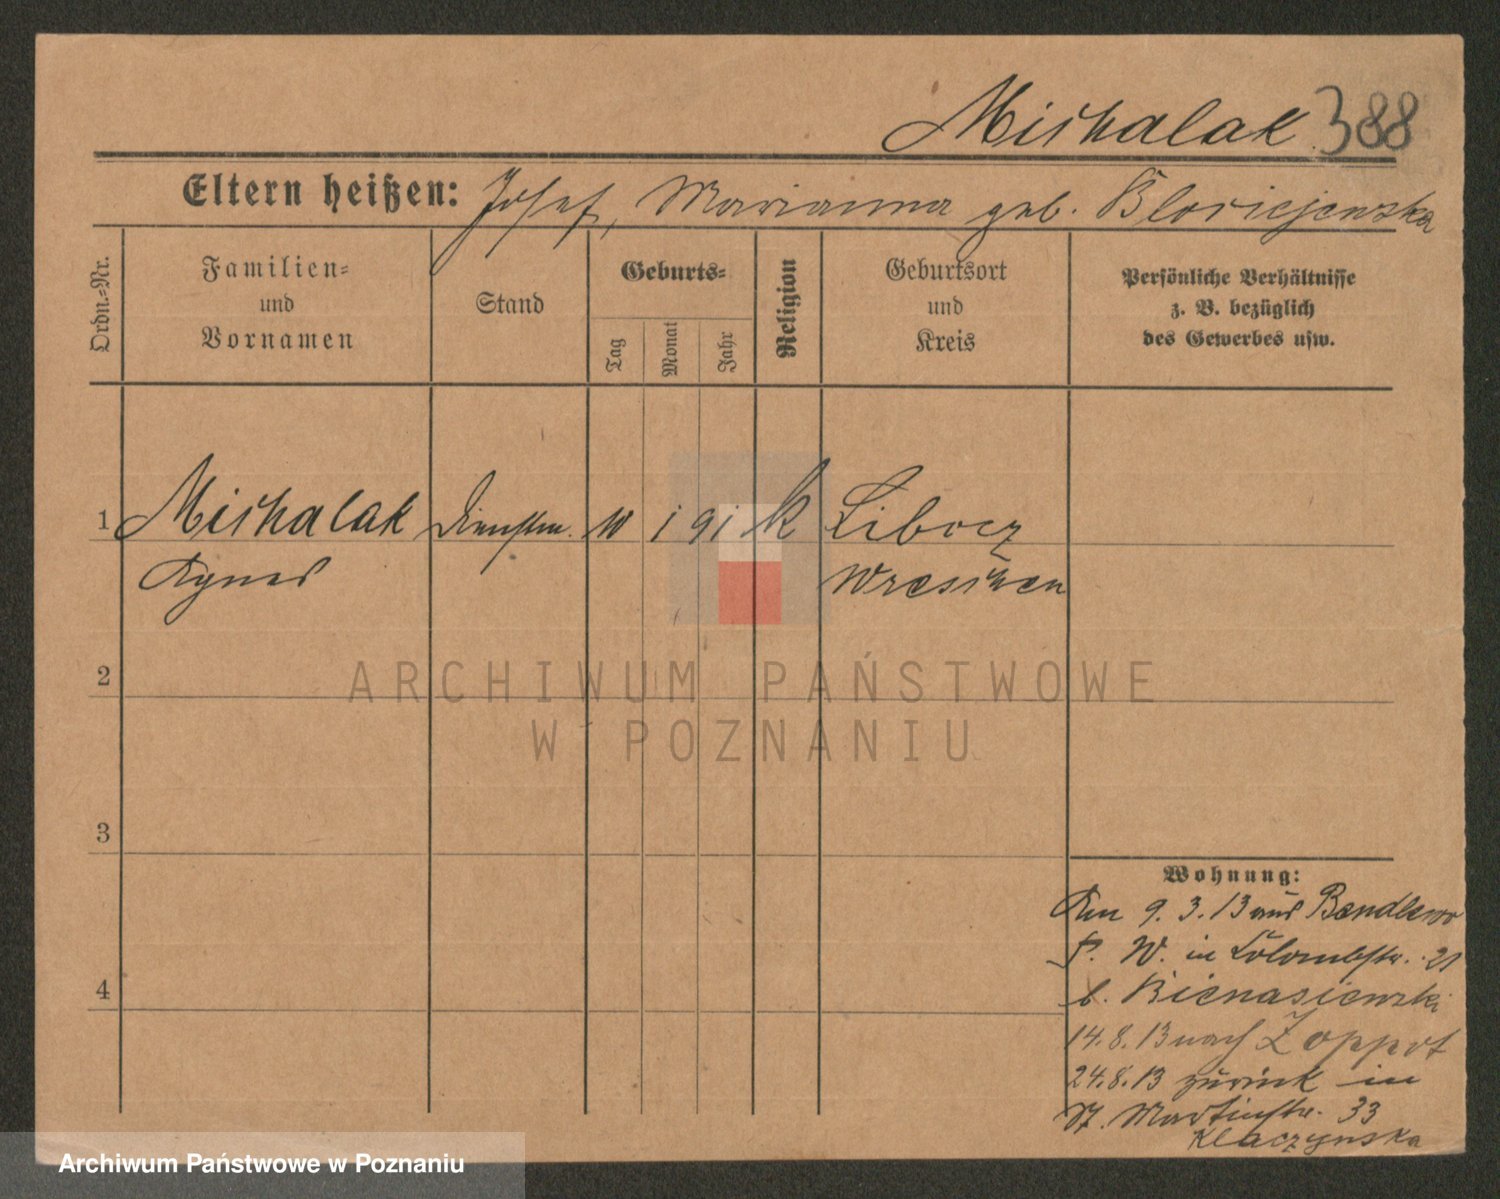 Michalak 388
Eltern heißen: Josef, Marianna geb. Bloriejewska
Ordn.-Nr.
Familien-
und
Vornamen
Stand
Geburts-
Tag
Monat
Jahr
Religion
Geburtsort
und
Kreis
Persönliche Verhältnisse
z. B. bezüglich
des Gewerbes usw.
1 Michalak Dienstm. 10 1 91 k Libocz
Agnes Wreschen
2
ARCHIWUM PAŃSTWOWE
W POZNANIU
3
Wohnung:
Am 9.3.13 aus Bendlewo
P. W. in Colombstr. 21
4
b. Bienasiewski
14.8.13 nach Zoppot
24.8.13 zurück in
St. Martinstr. 33
Klaczynska
Archiwum Państwowe w Poznaniu